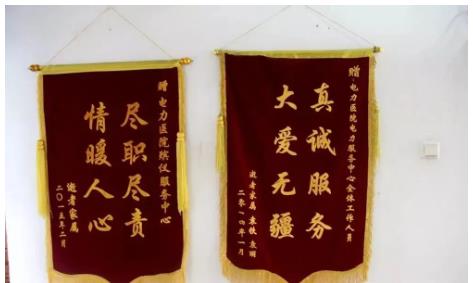 赠:电力医院殡仪服务中心
尽职尽责
情暖人心
逝者家属
二〇一五年二月
赠:电力医院电力服务中心全体工作人员
真诚服务
大爱无疆
逝者家属
二零一四年一月